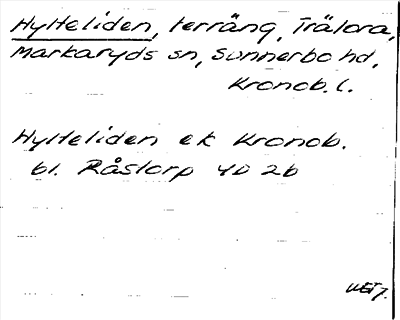 Hylteliden, terräng, Trälora,
Markaryds sn, Sunnerbo hd,
Kronob. l.
Hylteliden ek Kronob.
bl. Råstorp 4D 2b